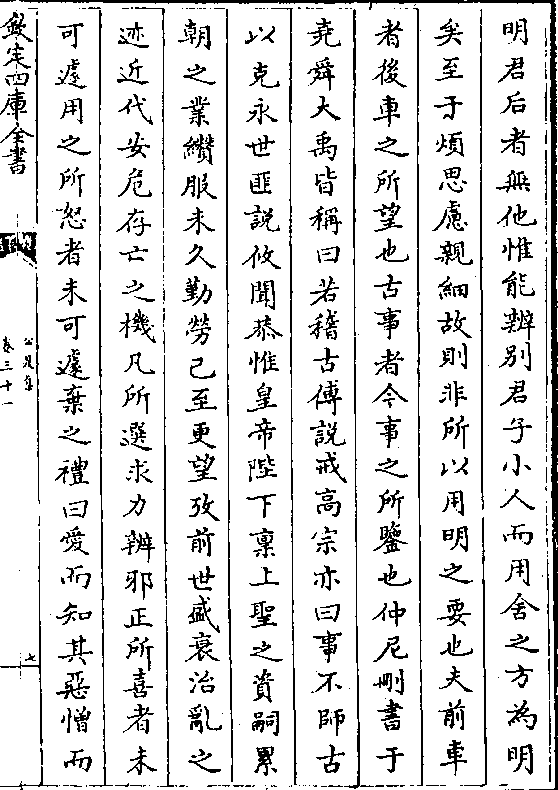 明君后者無他惟能辨别君子小人而用舍之方為明
矣至于煩思慮親細故則非所以用明之要也夫前車
者後車之所望也古事者今事之所鑒也仲尼刪書于
堯舜大禹皆稱曰若稽古傅説戒高宗亦曰事不師古
以克永世匪説攸聞恭惟皇帝陛下禀上聖之資嗣累
朝之業纉服未久勤勞已至更望攷前世盛衰治亂之
迹近代安危存亡之機凡所選求力辨邪正所喜者未
可遽用之所怒者未可遽棄之禮曰愛而知其惡憎而
欽定四庫全書
公是集
卷三十一
七